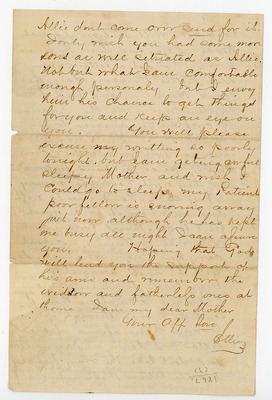 Allie dont come over send for it.
I only wish you had some more
sons as well situated as Allie,
Not but what I am comfortable
enough personaly. but I envy
him his chance to get things
for you and keep an eye on
you. You will please
excuse my writting so poorly
tonight. but I am getting awful
sleepy Mother and wish I
could go to sleep. my Patient
poor fellow is snoring away
just now although he has kept
me busy all night I can assure
you. Hoping that God
will lend you the support of
his arm and remember the
widow and fatherless ones at
home I am my dear Mother
Your Aff Son